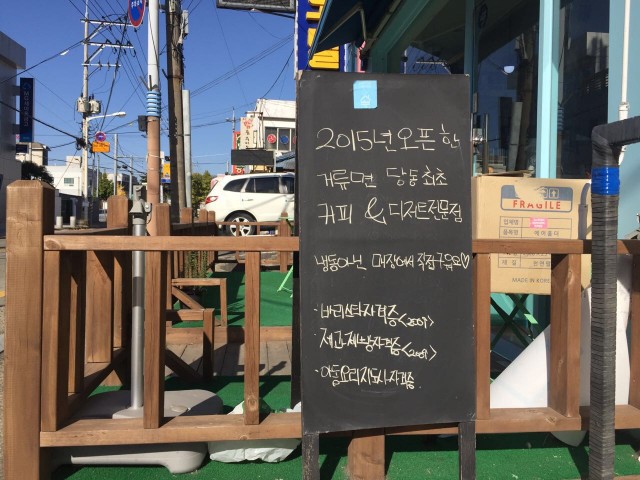 2015년 오픈 한
거류면 당동 최초
커피 & 디저트전문점
냉동아닌 매장에서 직접구워요♡
·바리스타자격증<2009>
·제과제빵자격증<2009>
·아동요리지도사자격증.
FRAGILE
MADE IN KOREA